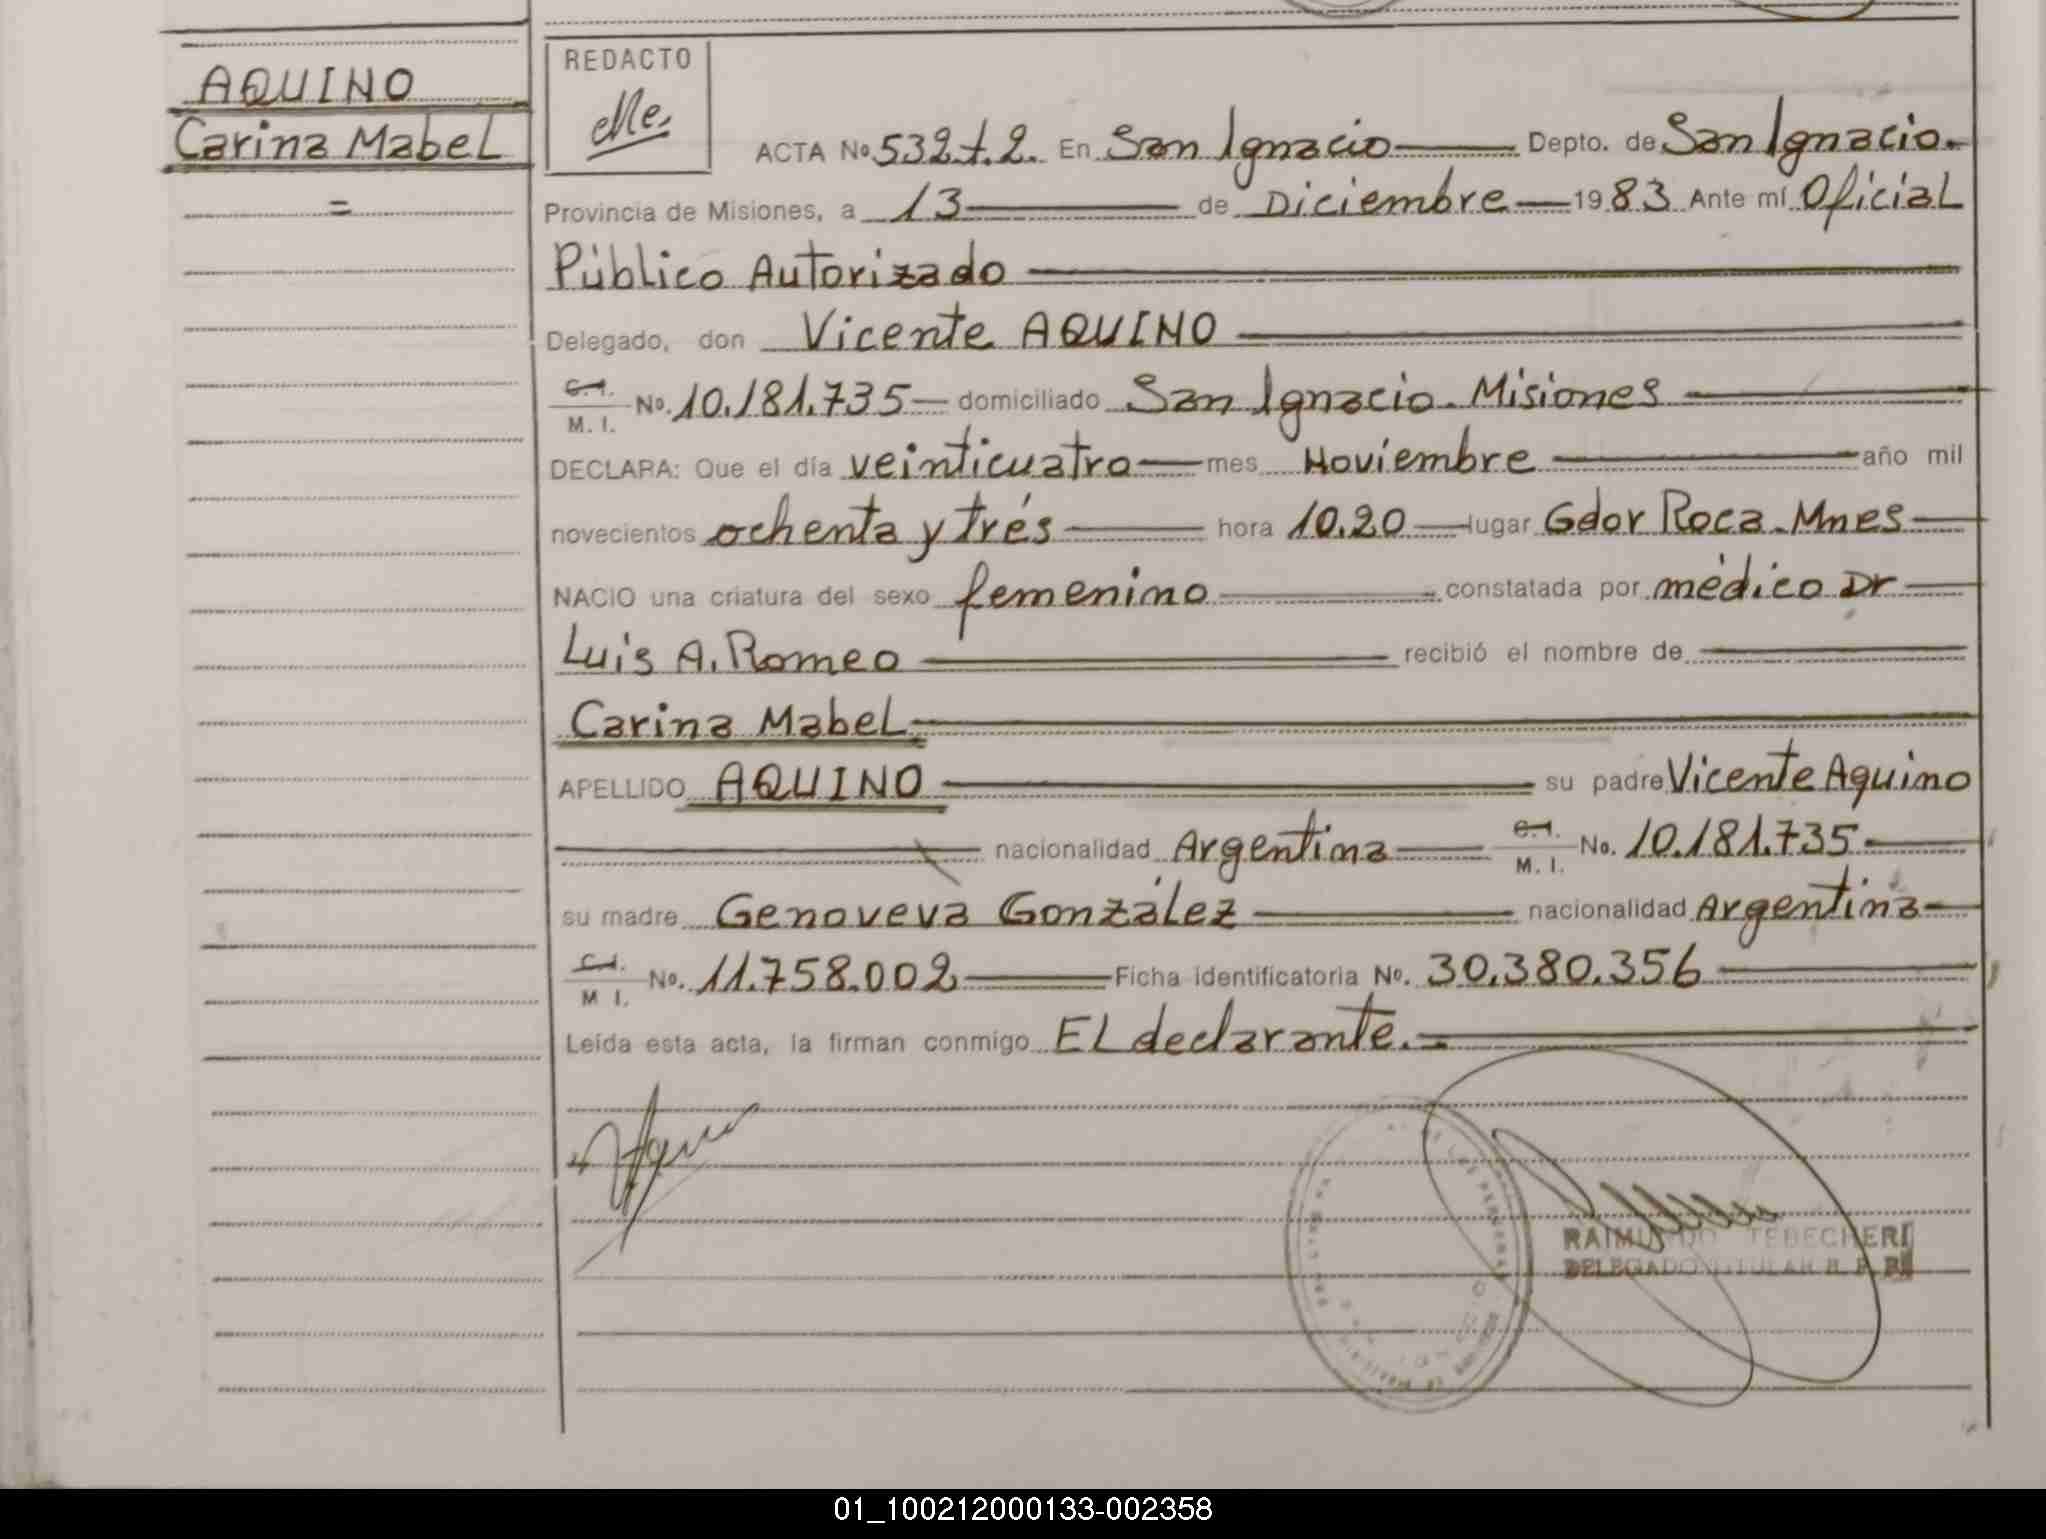 AQUINO
Carina Mabel
=
REDACTO
ACTA No 532 t. 2. En San Ignacio Depto. de San Ignacio.
Provincia de Misiones, a 13 de Diciembre 1983 Ante mí Oficial
Público Autorizado
Delegado, don Vicente AQUINO
C.I. M. I. No. 10.181.735 domiciliado San Ignacio. Misiones
DECLARA: Que el día veinticuatro mes Noviembre año mil
novecientos ochenta y trés hora 10.20 lugar Gdor Roca. Mnes
NACIO una criatura del sexo femenino constatada por médico Dr
Luis A. Romeo recibió el nombre de
Carina Mabel
APELLIDO AQUINO su padre Vicente Aquino
nacionalidad Argentina C.I. M. I. No. 10.181.735
su madre Genoveva González nacionalidad Argentina
C.I. M I. No. 11.758.002 Ficha identificatoria No. 30.380.356
Leída esta acta, la firman conmigo El declarante.=
RAIMUNDO TEBECHERI
DELEGADO TITULAR R. P. P.
01_100212000133-002358